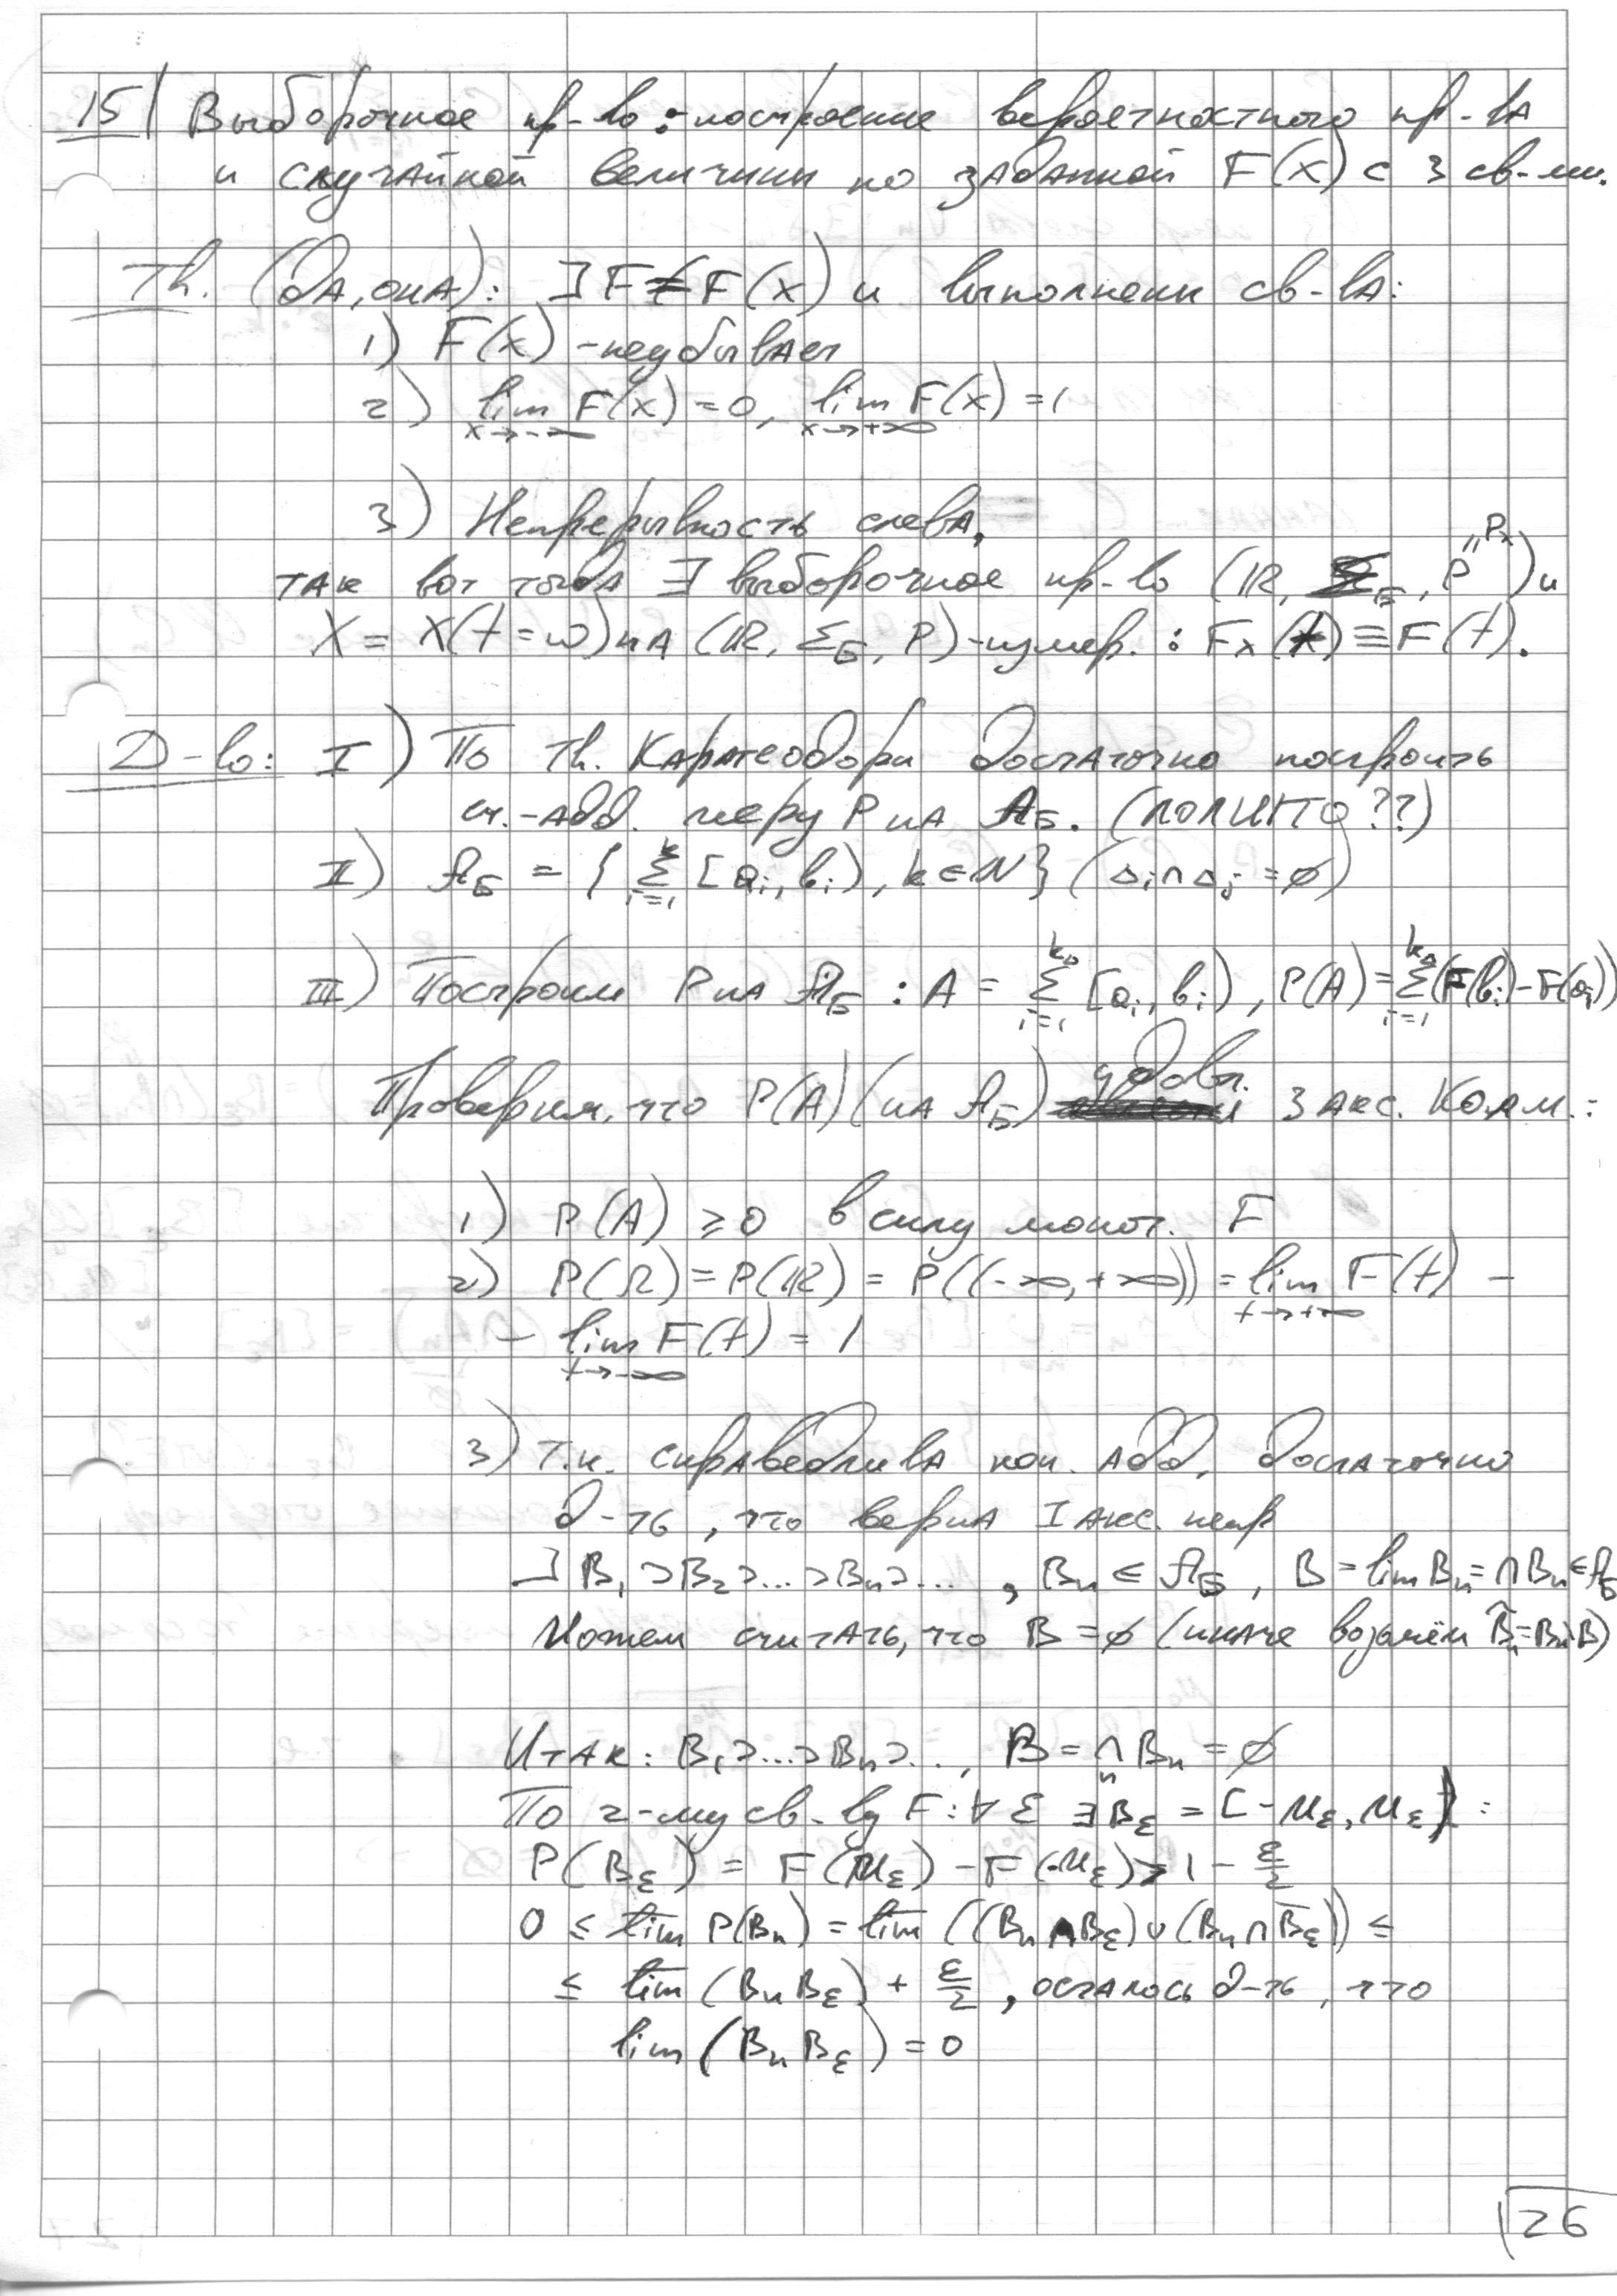 15) Выборочное пр-во: построение вероятностного пр-ва
и случайной величины по заданной F(x) с 3 св-ми.
Th. (да, она): ∃ F = F(x) и выполнены св-ва:
1) F(x) - неубывает
2) lim_{x→-∞} F(x) = 0, lim_{x→+∞} F(x) = 1
3) Непрерывность слева,
так вот тогда ∃ выборочное пр-во (ℝ, Σ_Б, P " P_x) и
X = X(t = ω) на (ℝ, Σ_Б, P)-измер. : F_X(t) ≡ F(t).
Д-во: I) По Th. Каратеодори достаточно построить
сч.-адд. меру P на 𝒜_Б. (ПОЛУКТО ??)
II) 𝒜_Б = { Σ_{i=1}^{k} [a_i, b_i), k ∈ N } (Δ_i ∩ Δ_j = ∅)
III) Построим P на 𝒜_Б : A = Σ_{i=1}^{k_0} [a_i, b_i), P(A) = Σ_{i=1}^{k_0} (F(b_i) - F(a_i))
Проверим, что P(A) (на 𝒜_Б) удовл. 3 акс. Колм.:
1) P(A) ≥ 0 в силу монот. F
2) P(Ω) = P(ℝ) = P((-∞, +∞)) = lim_{t→+∞} F(t) -
- lim_{t→-∞} F(t) = 1
3) Т.к. справедлива кон. адд, достаточно
д-ть, что верна I акс. непр
∃ B_1 ⊃ B_2 ⊃ ... ⊃ B_n ⊃ ... , B_n ∈ 𝒜_Б, B = lim B_n = ∩ B_n ∈ 𝒜_Б
Можем считать, что B = ∅ (иначе возьмём B̃_n = B_n \ B)
Итак: B_1 ⊃ ... ⊃ B_n ⊃ ..., B = ∩_n B_n = ∅
По 2-му св-ву F: ∀ ε ∃ B_ε = [-M_ε, M_ε) :
P(B_ε) = F(M_ε) - F(-M_ε) > 1 - ε/2
0 ≤ lim P(B_n) = lim ((B_n ∩ B_ε) ∪ (B_n ∩ B̅_ε)) ≤
≤ lim (B_n B_ε) + ε/2, осталось д-ть, что
lim (B_n B_ε) = 0
26